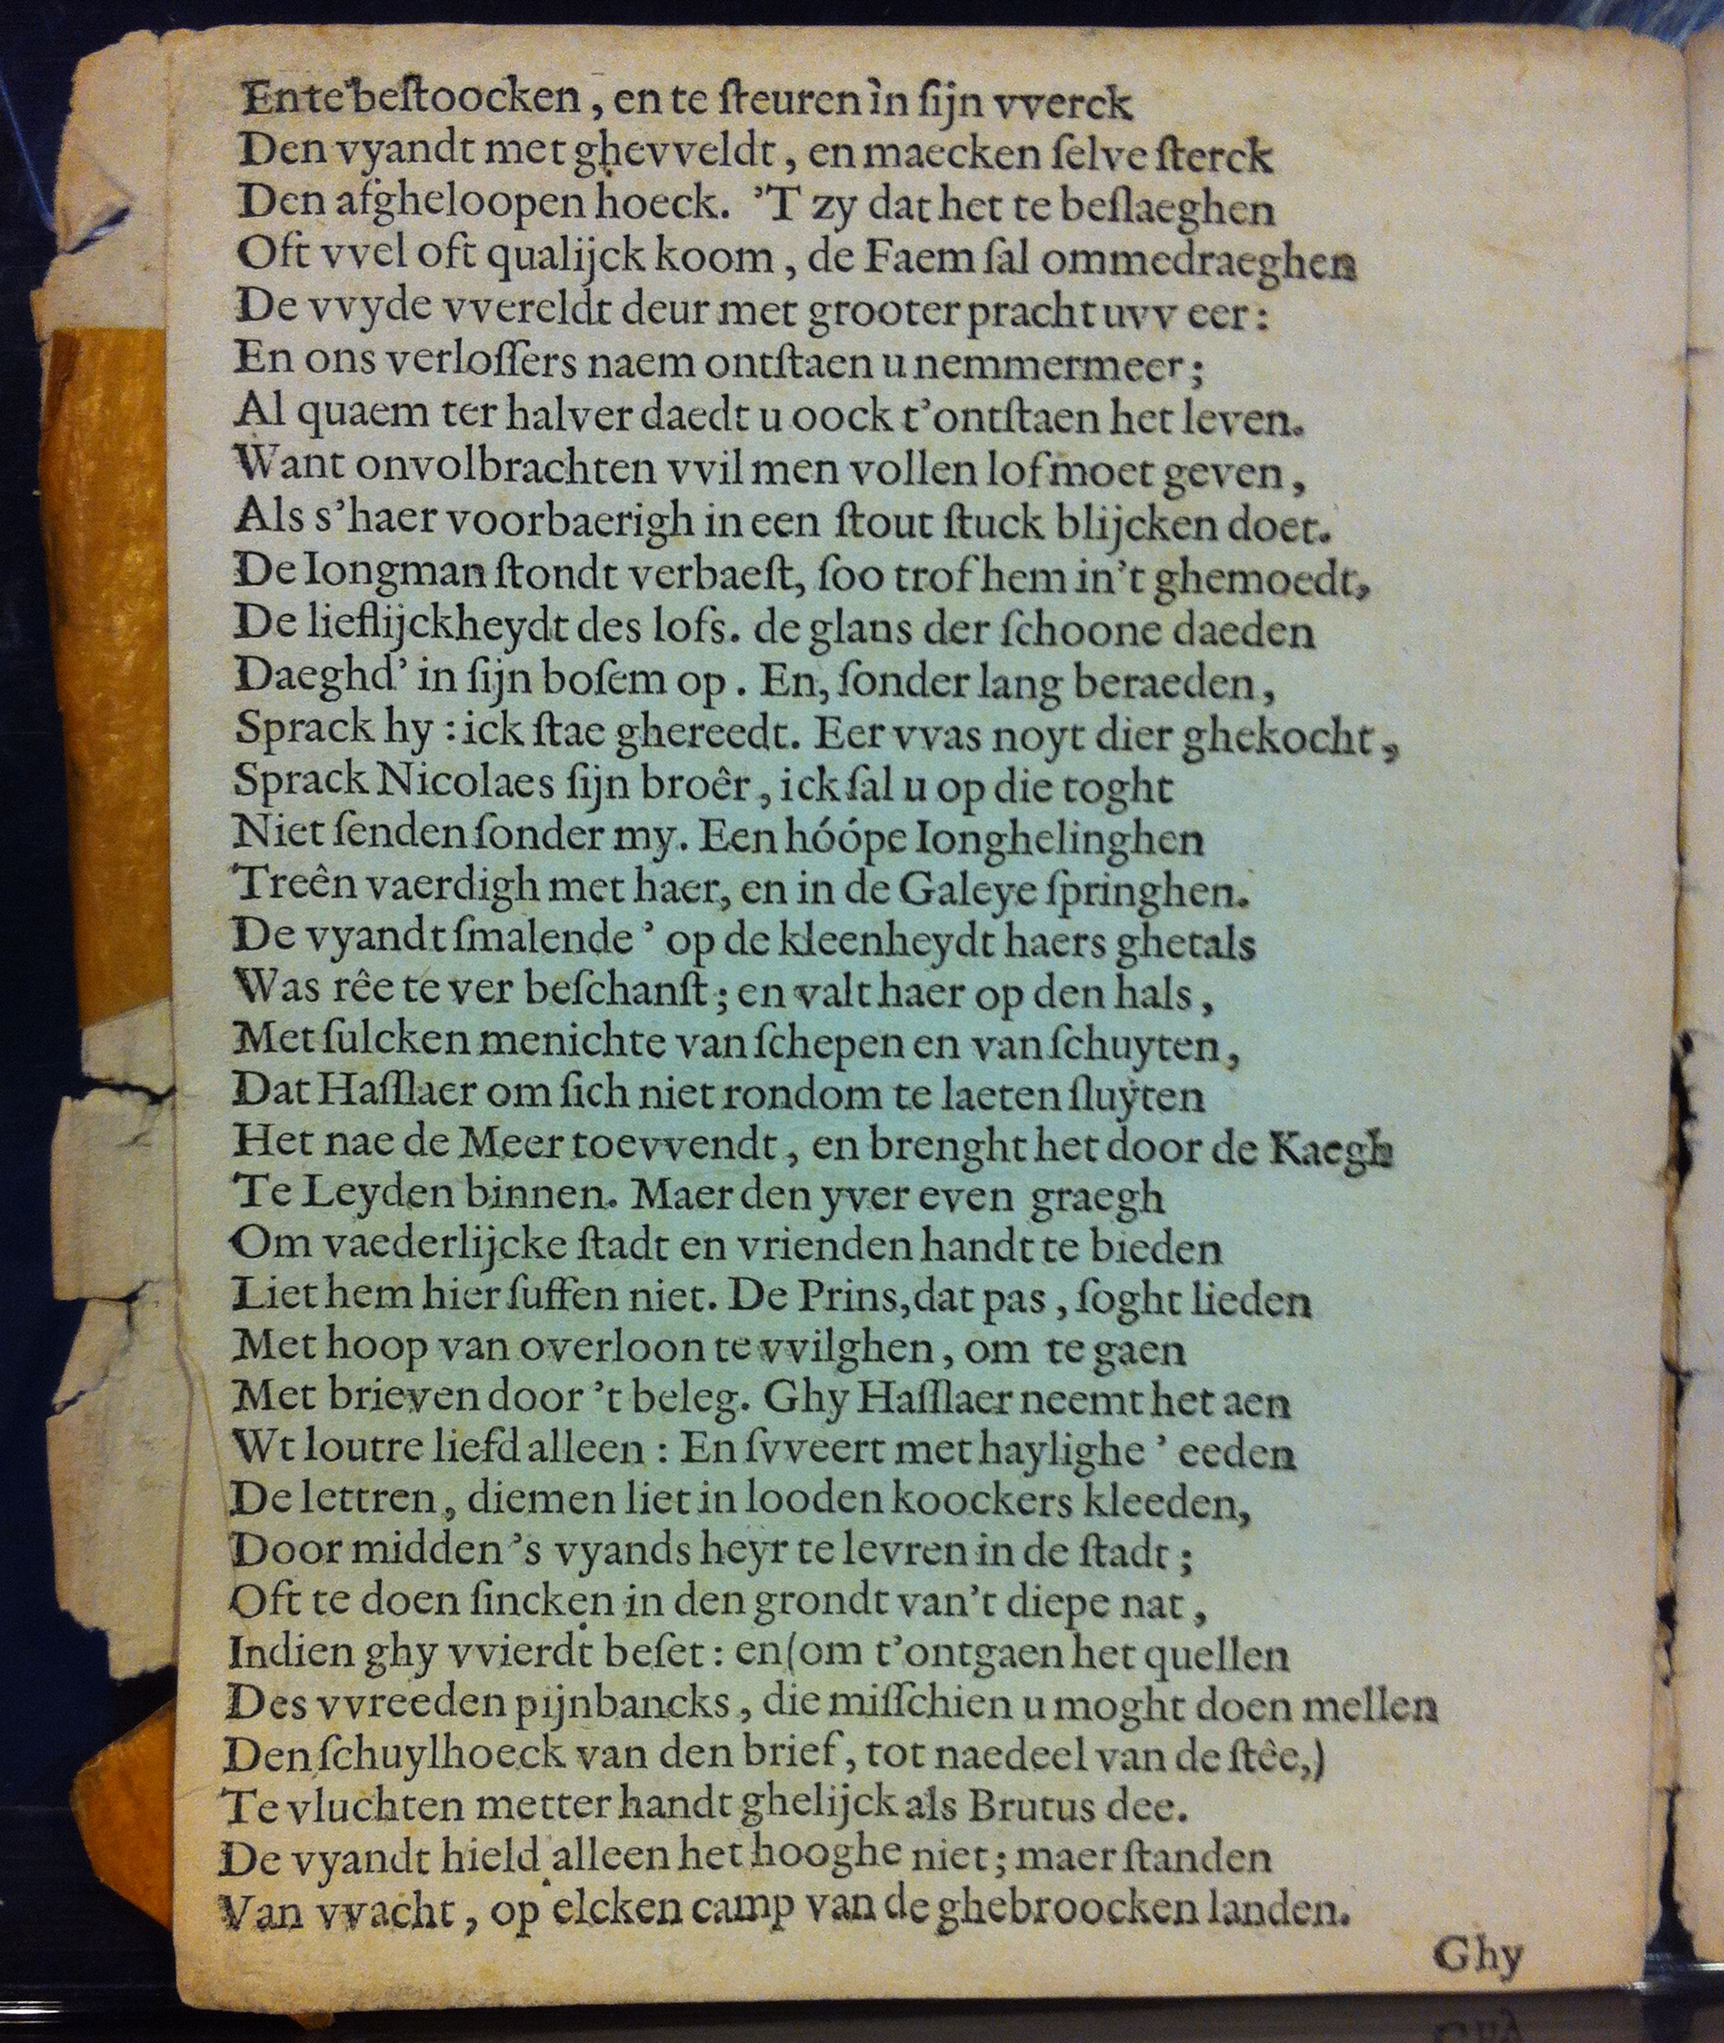 En te beſtoocken, en te ſteuren in ſijn vverck
Den vyandt met ghevveldt, en maecken ſelve ſterck
Den afgheloopen hoeck. 'T zy dat het te beſlaeghen
Oft vvel oft qualijck koom, de Faem ſal ommedraeghen
De vvyde vvereldt deur met grooter pracht uvv eer:
En ons verloſſers naem ontſtaen u nemmermeer;
Al quaem ter halver daedt u oock t'ontſtaen het leven.
Want onvolbrachten vvil men vollen lof moet geven,
Als s'haer voorbaerigh in een ſtout ſtuck blijcken doet.
De Iongman ſtondt verbaeſt, ſoo trof hem in't ghemoedt,
De lieflijckheydt des lofs. de glans der ſchoone daeden
Daeghd' in ſijn boſem op. En, ſonder lang beraeden,
Sprack hy: ick ſtae ghereedt. Eer vvas noyt dier ghekocht,
Sprack Nicolaes ſijn broêr, ick ſal u op die toght
Niet ſenden ſonder my. Een hóópe Ionghelinghen
Treên vaerdigh met haer, en in de Galeye ſpringhen.
De vyandt ſmalende' op de kleenheydt haers ghetals
Was rêe te ver beſchanſt; en valt haer op den hals,
Met ſulcken menichte van ſchepen en van ſchuyten,
Dat Haſſlaer om ſich niet rondom te laeten ſluyten
Het nae de Meer toevvendt, en brenght het door de Kaegh
Te Leyden binnen. Maer den yver even graegh
Om vaederlijcke ſtadt en vrienden handt te bieden
Liet hem hier ſuffen niet. De Prins, dat pas, ſoght lieden
Met hoop van overloon te vvilghen, om te gaen
Met brieven door 't beleg. Ghy Haſſlaer neemt het aen
Wt loutre liefd alleen: En ſvveert met haylighe' eeden
De lettren, diemen liet in looden koockers kleeden,
Door midden 's vyands heyr te levren in de ſtadt;
Oft te doen ſincken in den grondt van't diepe nat,
Indien ghy vvierdt beſet: en (om t'ontgaen het quellen
Des vvreeden pijnbancks, die miſſchien u moght doen mellen
Den ſchuylhoeck van den brief, tot naedeel van de ſtêe,)
Te vluchten metter handt ghelijck als Brutus dee.
De vyandt hield alleen het hooghe niet; maer ſtanden
Van vvacht, op elcken camp van de ghebroocken landen.
Ghy